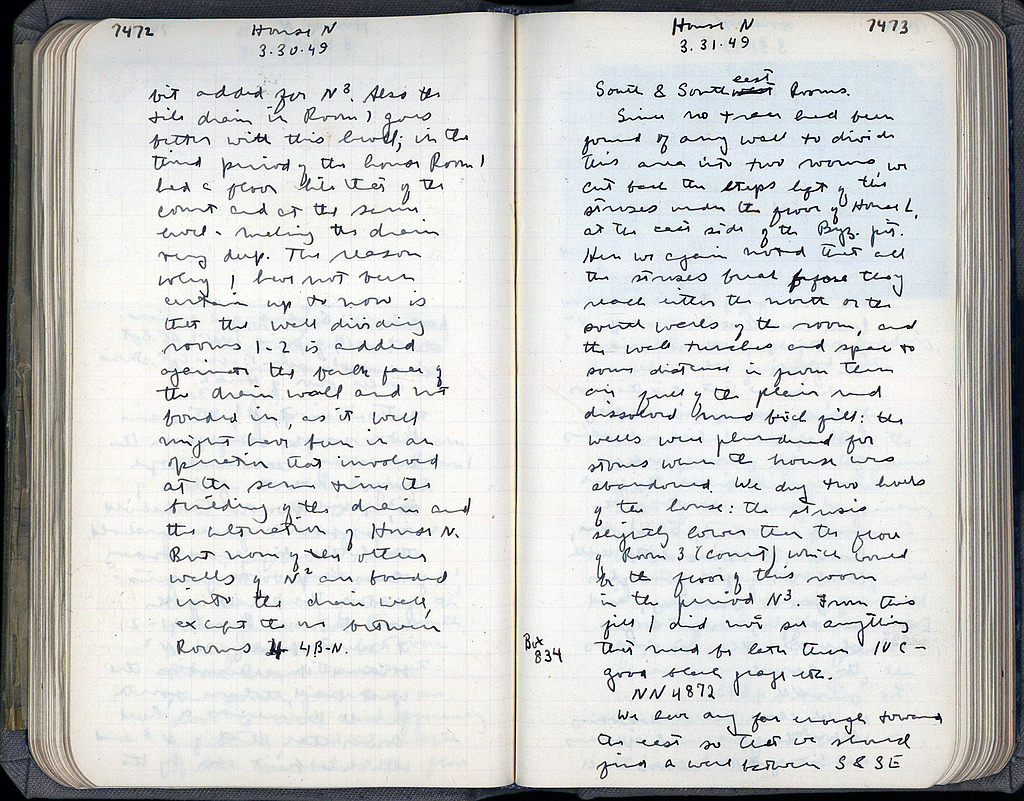 7472
House N
3.30.49
bit added for N³. Also the
tile drain in Room 1 goes
better with this level; in the
third period of the house Room 1
had a floor like that of the
court and at the same
level - making the drain
very deep. The reason
why I have not been
certain up to now is
that the wall dividing
rooms 1-2 is added
against the back face of
the drain wall and not
bonded in, as it well
might have been in an
operation that involved
at the same time the
building of the drain and
the alteration of House N.
But none of the other
walls of N² are bonded
into the drain wall,
except the one between
Rooms 4B-N.
7473
House N
3.31.49
South & Southeast Rooms.
Since no trace had been
found of any wall to divide
this area into two rooms, we
cut back the steps left of the
stroses under the floor of House L,
at the east side of the Byz. pit.
Here we again noted that all
the stroses break before they
reach either the north or the
south walls of the room, and
the wall trenches and space to
some distance in from them
are full of the plain mud
dissolved mud brick fill: the
walls were plundered for
stones when the house was
abandoned. We dug two levels
of the house: the strosis
slightly lower than the floor
of Room 3 (court) which would
be the floor of this room
in the period N³. From this
fill I did not see anything
that need be later than IV C -
good black glaze etc.
Box
834
NN 4872
We have dug far enough toward
the east so that we should
find a wall between S & SE